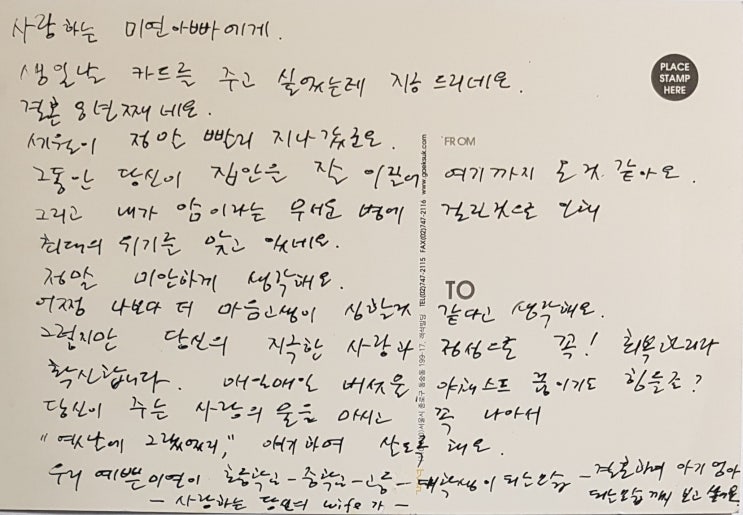 사랑하는 미연아빠에게.
생일날 카드를 주고 싶었는데 지금 드리네요.
결혼 8년째네요.
세월이 정말 빨리 지나갔군요.
그동안 당신이 집안을 잘 이끌어 여기까지 온것 같아요.
그리고 내가 암이라는 무서운 병에 걸린것으로 인해
최대의 위기를 맞고 있네요.
정말 미안하게 생각해요.
어쩜 나보다 더 마음고생이 심할것 같다고 생각해요.
그렇지만 당신의 지극한 사랑과 정성으로 꼭! 회복되리라
확신합니다. 매일매일 버섯물 야채스프 끓이기도 힘들죠?
당신이 주는 사랑의 물을 마시고 꼭 나아서
"옛날에 그랬었지," 얘기하며 살도록 해요.
우리 예쁜 미연이 초등학생-중학생-고등-대학생이 되는모습 - 결혼하여 아기 엄마
되는모습까지 보고 싶어요
- 사랑하는 당신의 wife가 -
PLACE
STAMP
HERE
FROM
TO
서울시 종로구 동숭동 199-17, 객석빌딩 TEL(02)747-2115 FAX(02)747-2116 www.gaeksuk.com